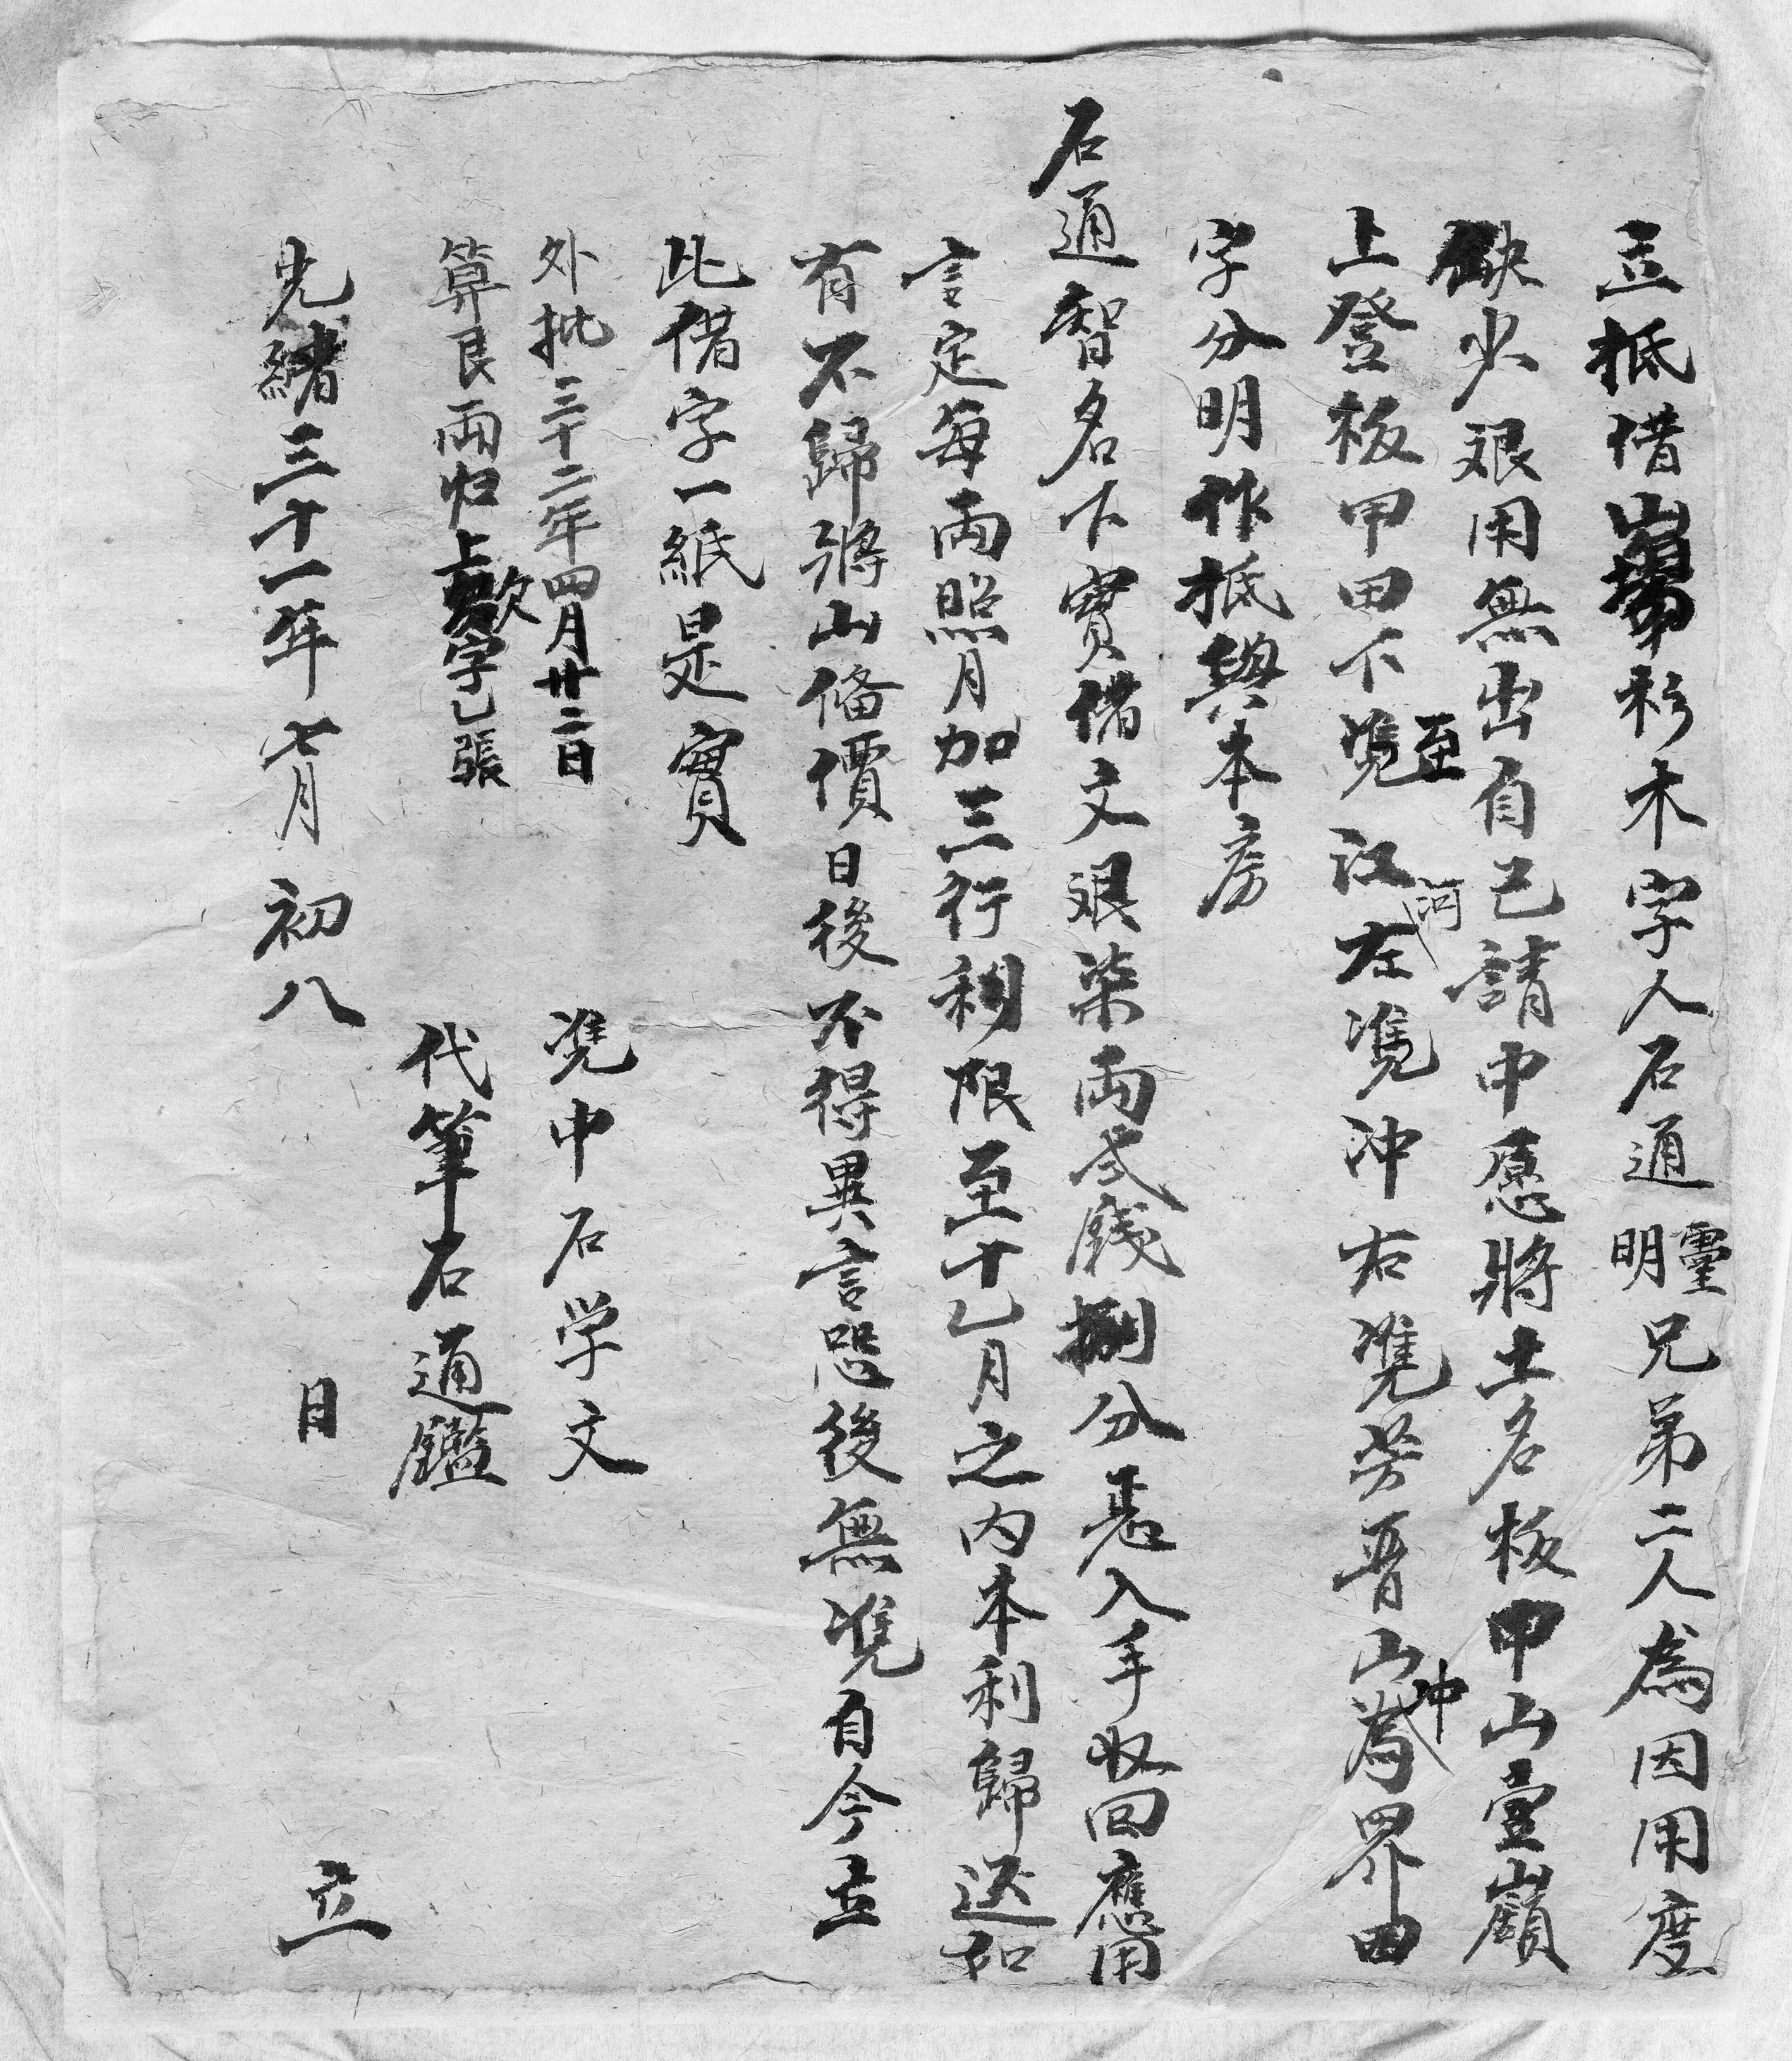 立抵借山場杉木字人石通靈明兄弟二人為因用度
缺少艮用無出自己請中愿將土名板甲山壹嶺
上登板甲田下凴至江河左凴沖右凴芳晋山沖為界四
字分明作抵與本房
石通智名下實借文艮柒両弍錢捌分悉入手收回應用
言定每両照月加三行利限至十乙月之内本利歸还如
有不歸將山俻價日後不得異言恐後無凴自今立
此借字一紙是實
外批三十二年四月廿二日
算艮両归上欠字乙張
凴中石学文
代筆石通鑑
光緒三十一年七月初八日立